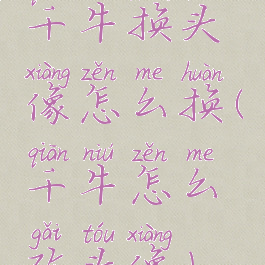 千牛换头
xiàng zěn me huàn
像怎么换(
qiān niú zěn me
千牛怎么
gǎi tóu xiàng
改头像)